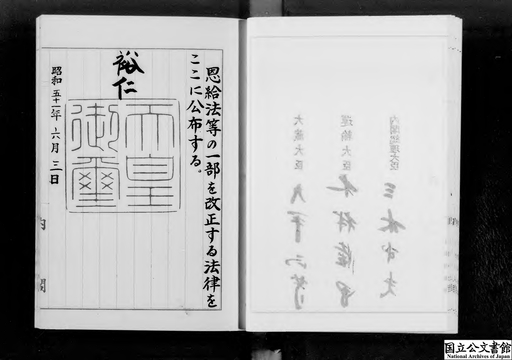 恩給法等の一部を改正する法律を
ここに公布する。
裕仁
天皇
御璽
昭和五十一年六月三日
内閣
内閣総理大臣
三木武夫
運輸大臣
木村睦男
大蔵大臣
大平正芳
国立公文書館
National Archives of Japan